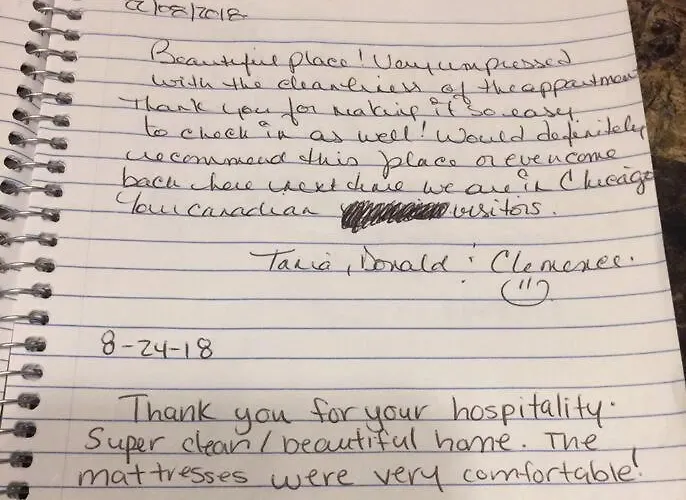 /08/2018
Beautiful place! Very impressed
with the cleanliness of the appartment
Thank you for making it so easy
to check in as well! Would definitely
recommend this place or even come
back here next time we are in Chicago
Your canadian visitors.
Tania, Donald & Clemence.
8-24-18
Thank you for your hospitality.
Super clean/beautiful home. The
mattresses were very comfortable!